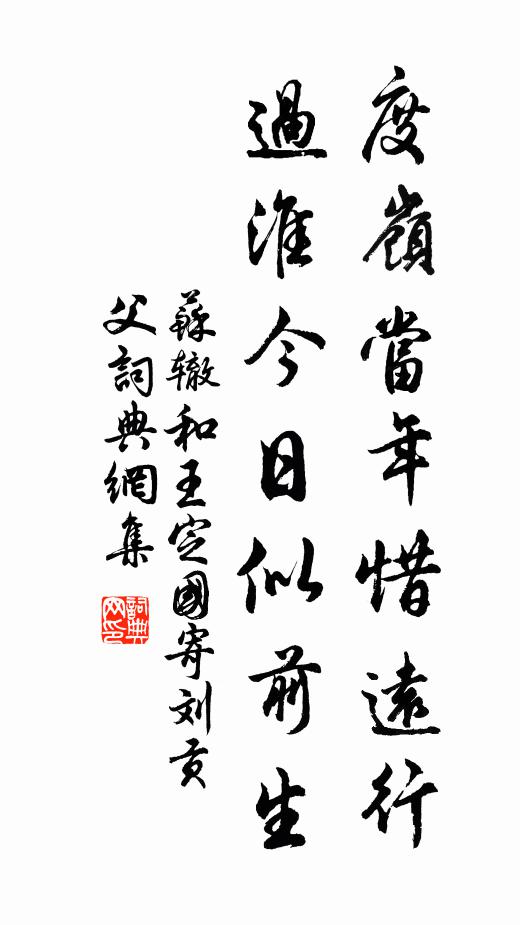 度嶺當年惜遠行
過淮今日似前生
蘇辙和王定國寄刘贡
父詞典網集
詞典
网印